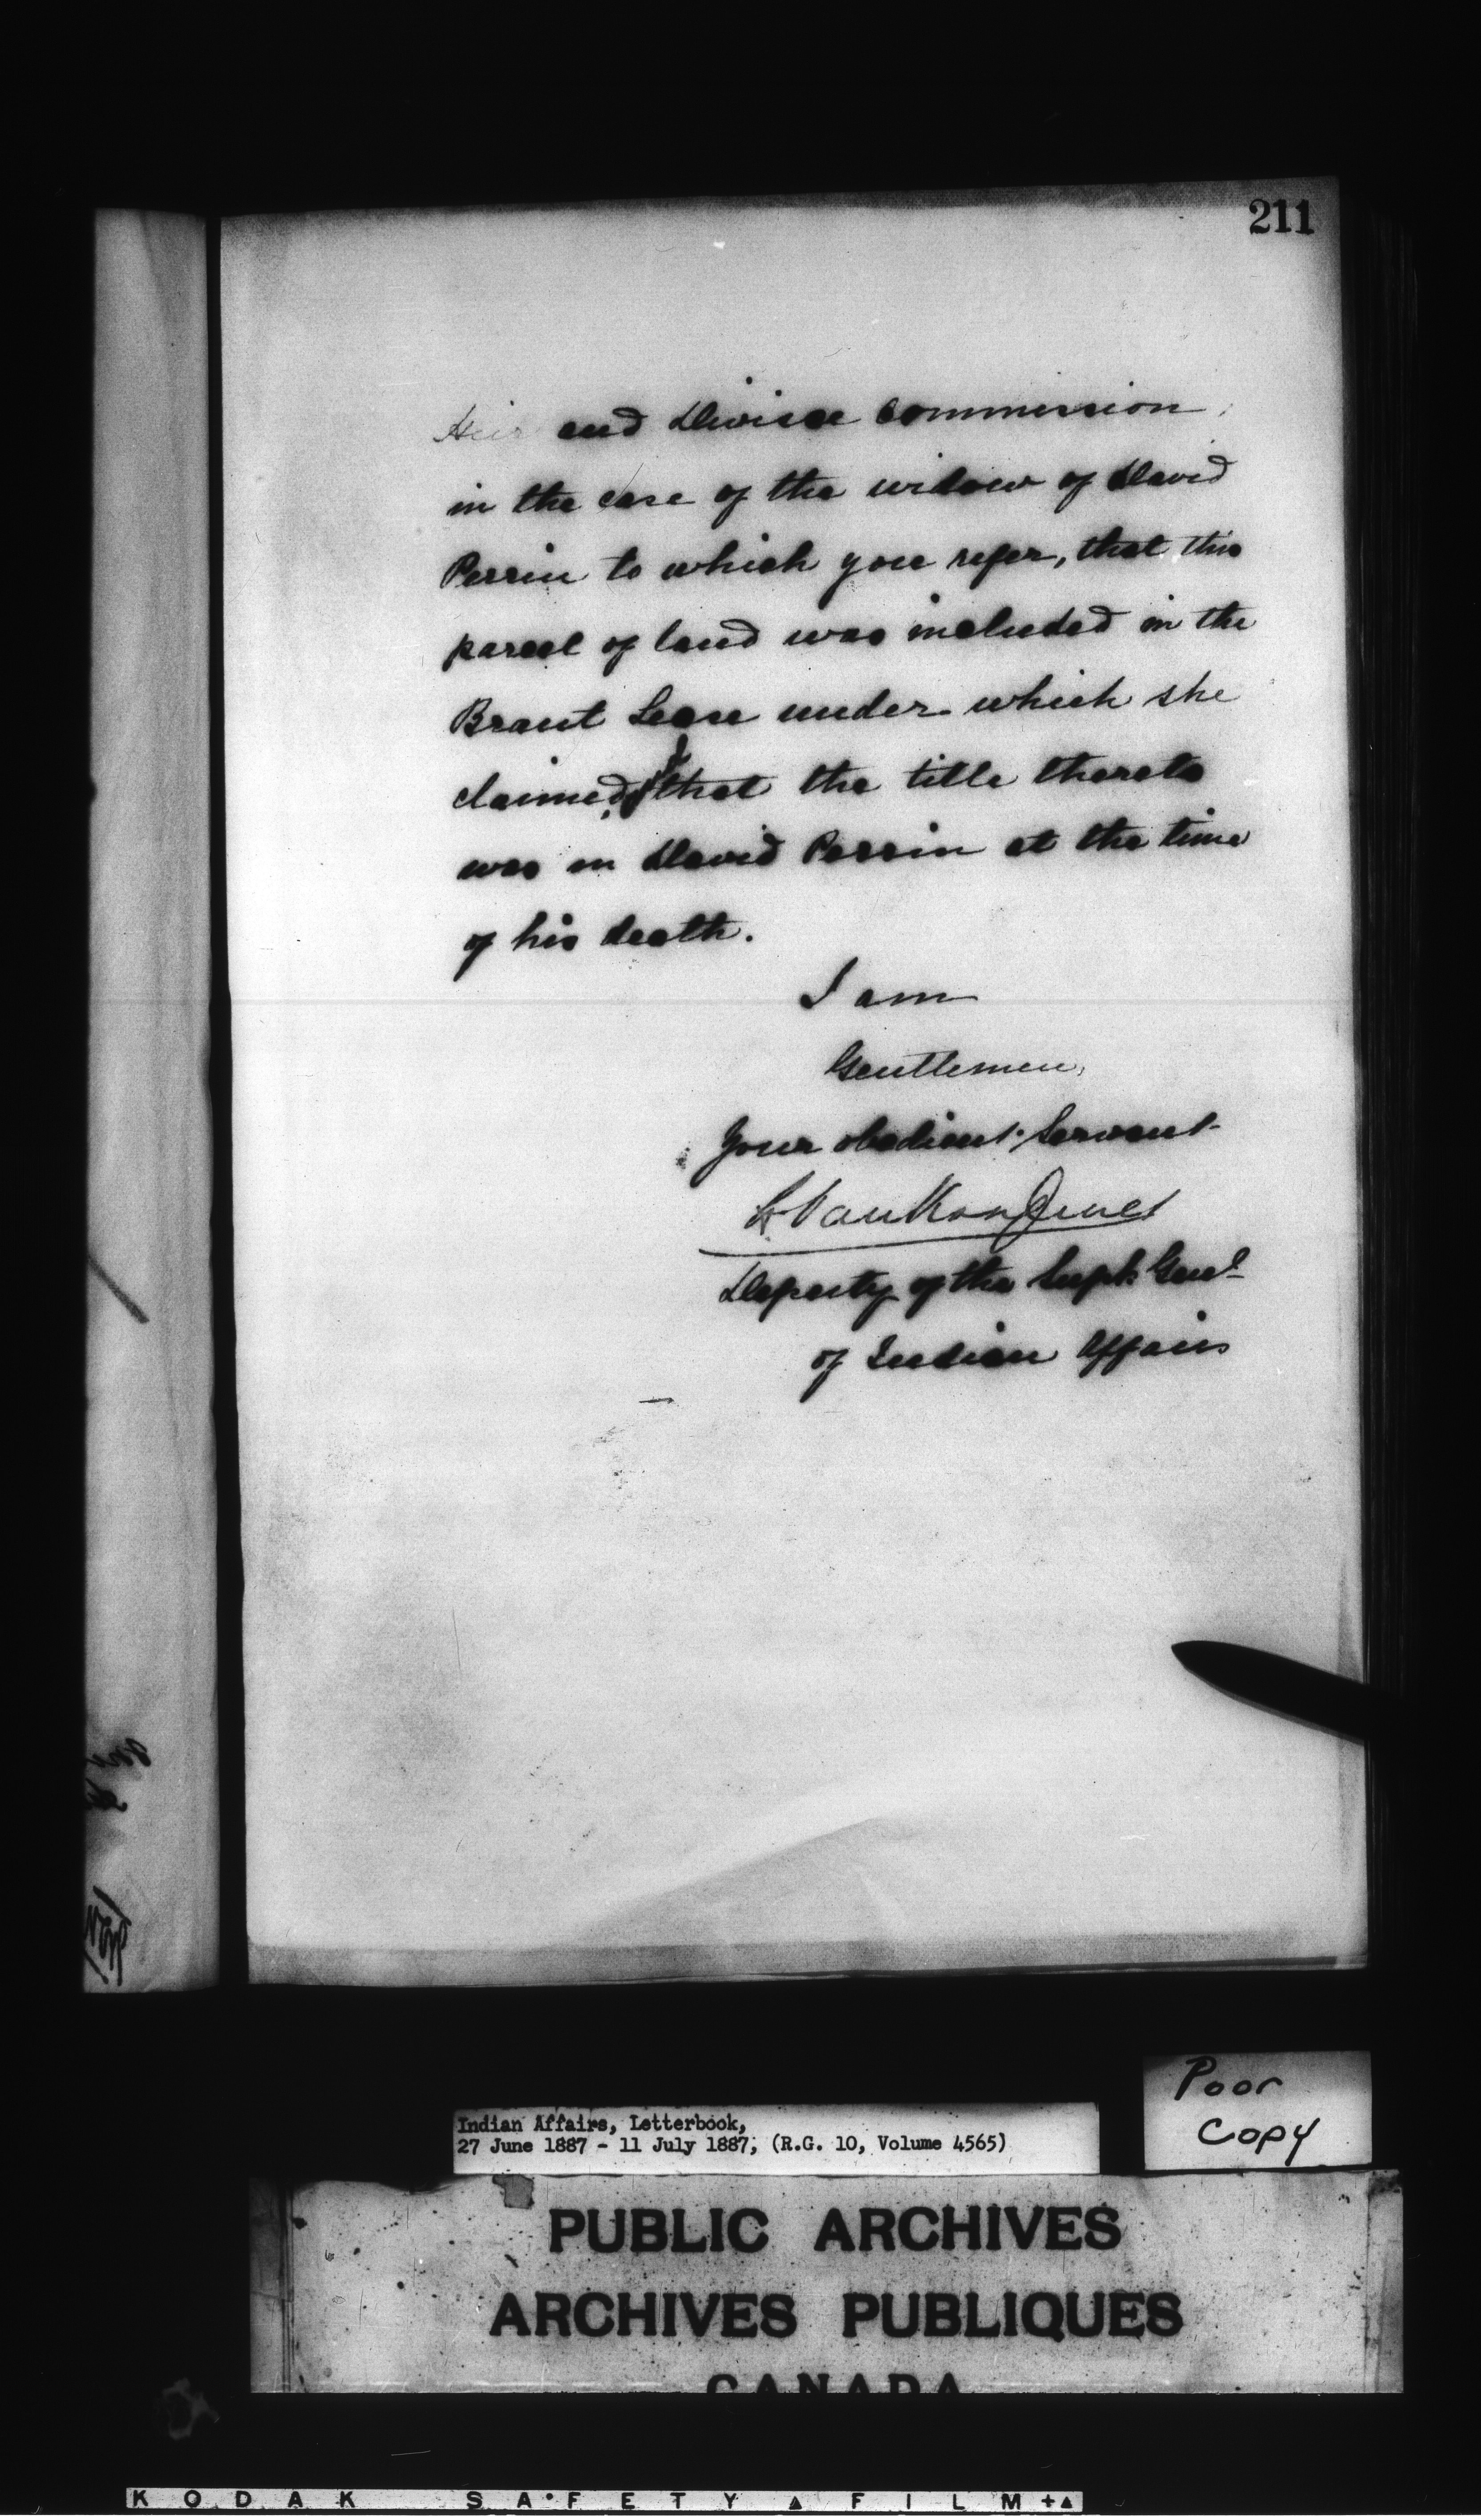 211
Heir and Devisee Commission,
in the case of the widow of David
Perrin to which you refer, that this
parcel of land was included in the
Brant Lease under which she
claimed, & that the title thereto
was in David Perrin at the time
of his death.
I am
Gentlemen,
Your obedient Servant
L. VanKoughnet
Deputy of the Supt. Genl.
of Indian Affairs
Poor
Copy
Indian Affairs, Letterbook,
27 June 1887 - 11 July 1887, (R.G. 10, Volume 4565)
PUBLIC ARCHIVES
ARCHIVES PUBLIQUES
CANADA
KODAK SAFETY FILM